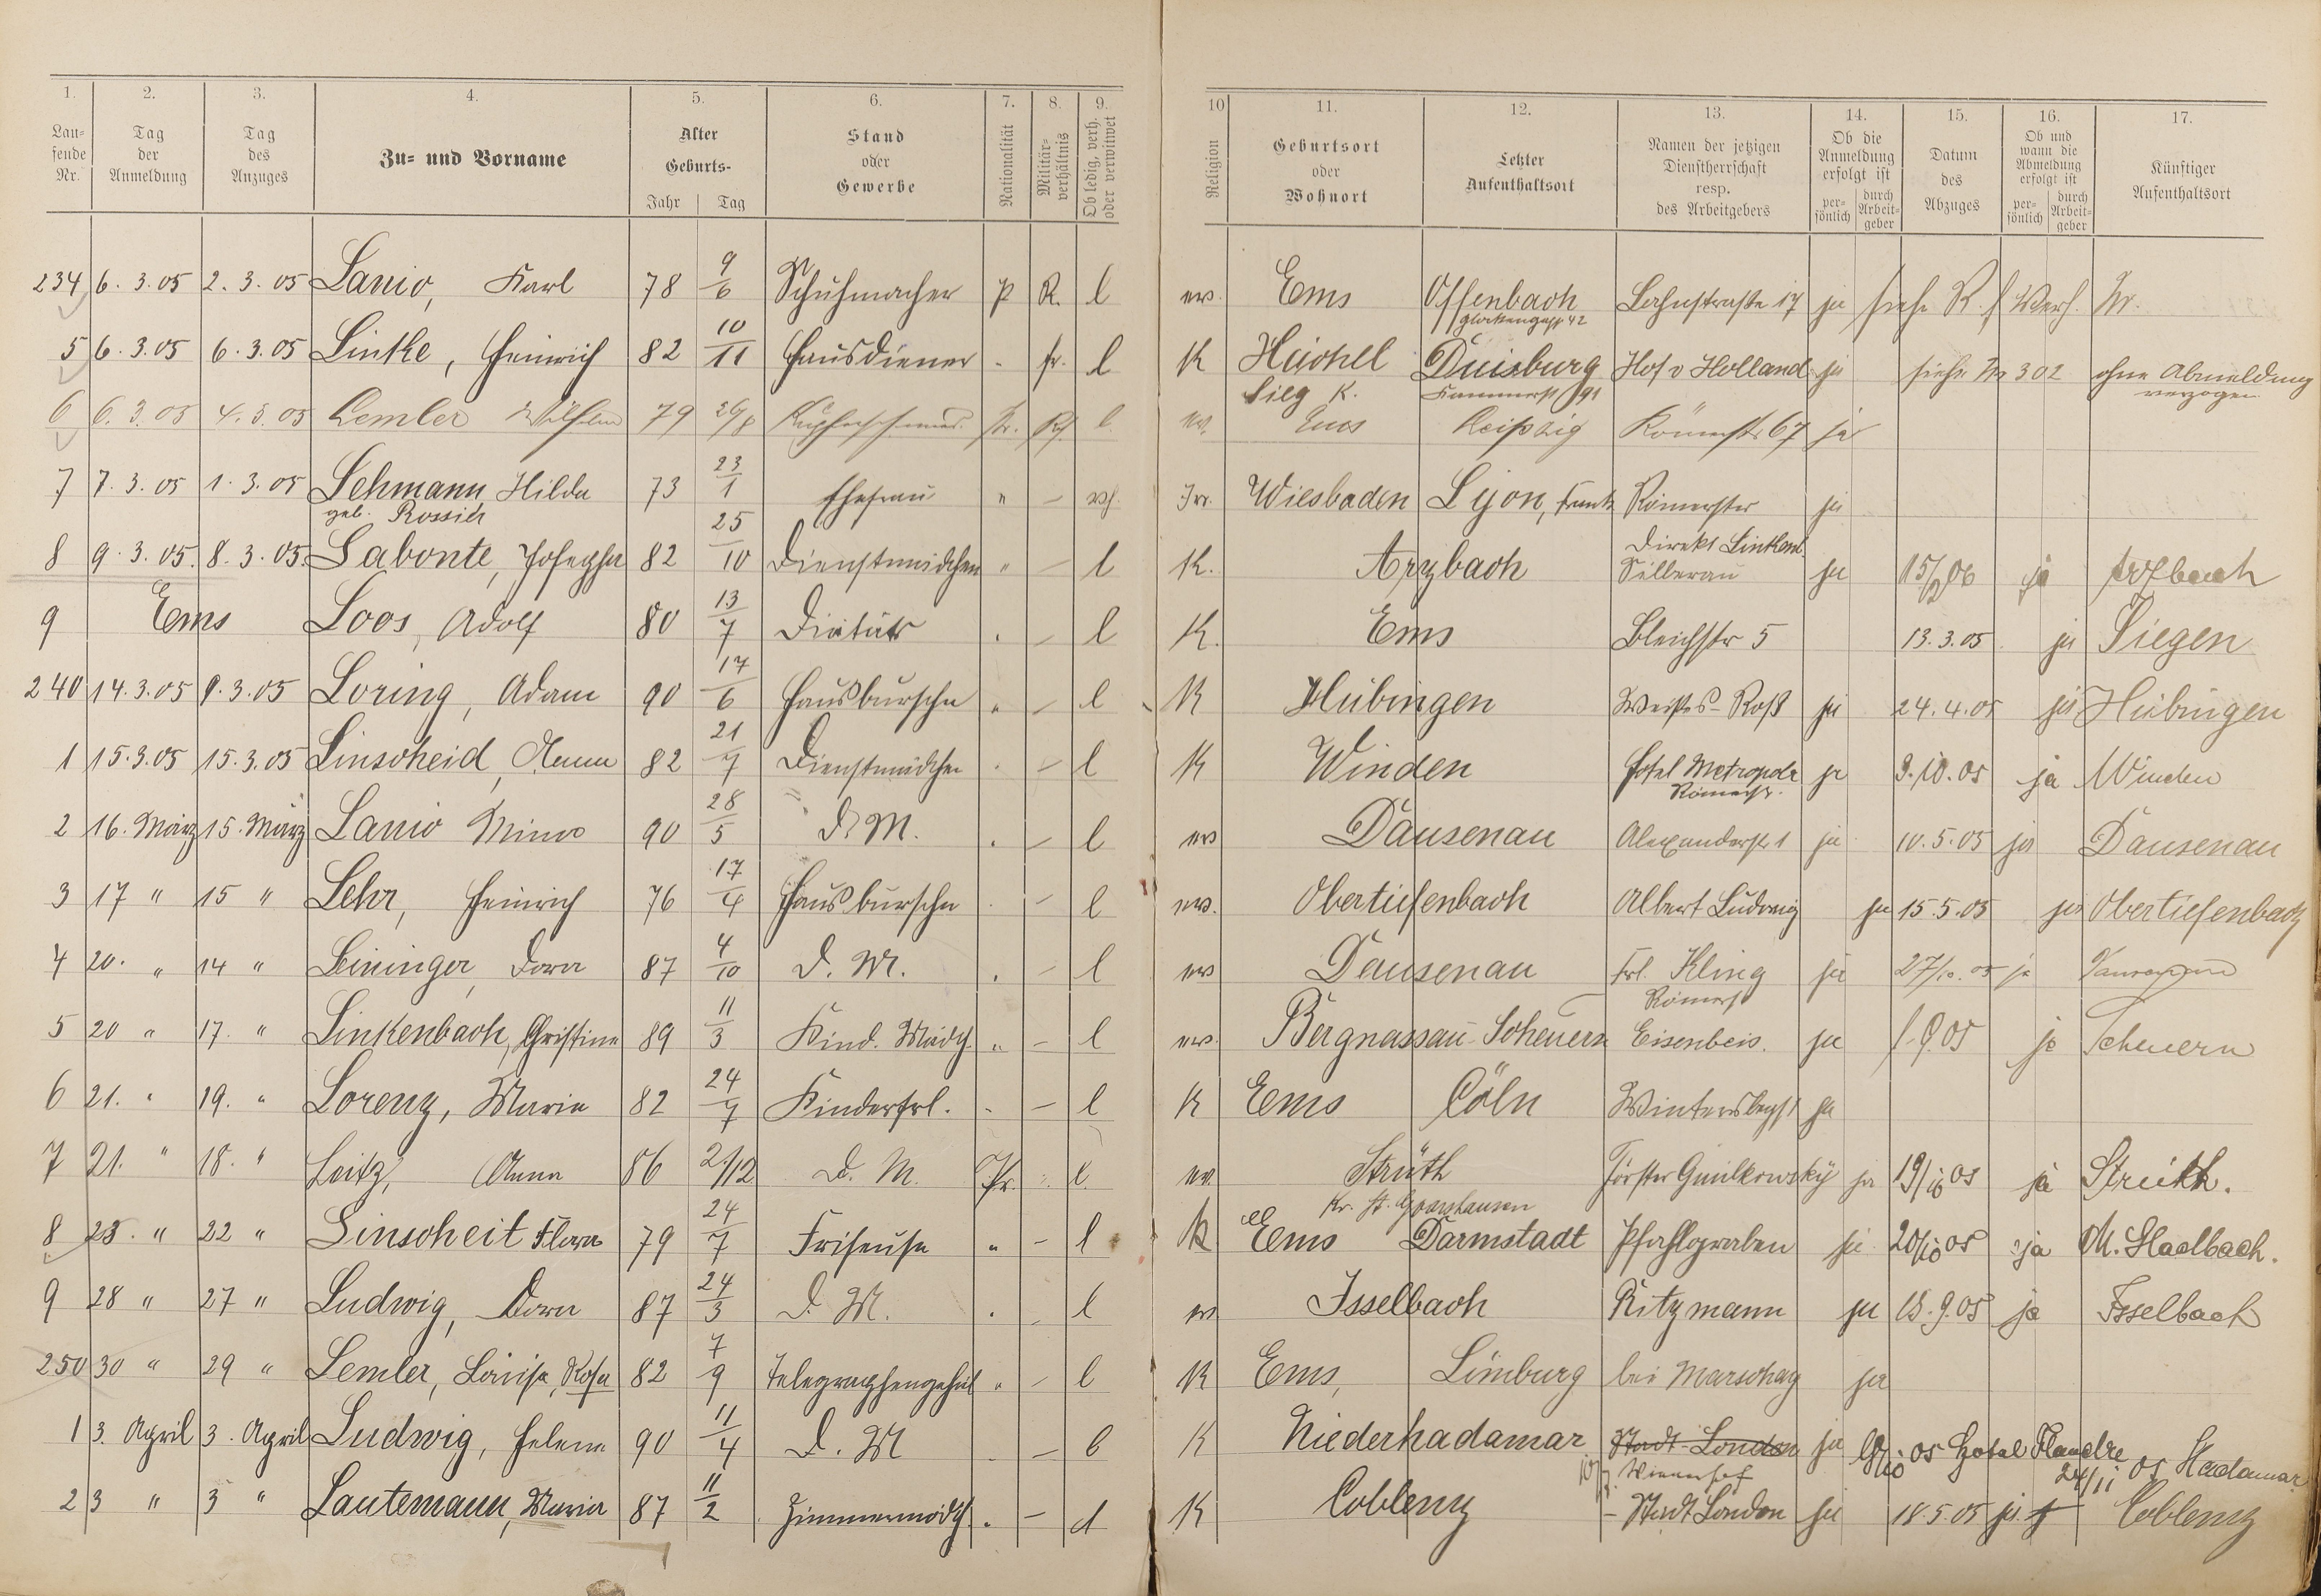 1. 2. 3. 4. 5. 6. 7. 8. 9. 10 11. 12. 13. 14. 15. 16. 17.
Laufende Nr. Tag der Anmeldung Tag des Anzuges Zu- und Vorname Alter Geburts- Jahr Tag Stand oder Gewerbe Nationalität Militärverhältnis Ob ledig, verh. oder verwitwet Religion Geburtsort oder Wohnort Letzter Aufenthaltsort Namen der jetzigen Dienstherrschaft resp. des Arbeitgebers Ob die Anmeldung erfolgt ist persönlich durch Arbeitgeber Datum des Abzuges Ob und wann die Abmeldung erfolgt ist persönlich durch Arbeitgeber Künftiger Aufenthaltsort
234 6. 3. 05 2. 3. 05 Lanio, Karl 78 9/6 Schuhmacher P R. l ev. Ems Offenbach Lahnstraße 17 ja siehe R.
Glockengasse 42
5 6. 3. 05 6. 3. 05 Linke, Heinrich 82 10/11 Hausdiener - fr. l K Duisburg Hof v Holland ja siehe Nr 302 ohne Abmeldung
Sieg K. 91 verzogen
6 6. 3. 05 4. 3. 05 Lemler Wilhelm 79 26/8 Kupferschmied Pr. l. ev. Ems Leipzig Römerstr 67 ja
7 7. 3. 05 1. 3. 05 Lehmann Hilda 73 23/1 Ehefrau " - vh Isr. Wiesbaden Lyon, Frankr Römerstr ja
geb. Rossier
8 9. 3. 05. 8. 3. 05 Labonte, Josepha 82 25/10 Dienstmädchen " - l K. Arzbach Direkt Linkenb Silberau ja 15/2 06 ja Arzbach
9 Ems Loos, Adolf 80 13/7 Diätar . - l K. Ems Bleichstr 5 13. 3. 05 ja Siegen
240 14. 3. 05 9. 3. 05 Loring, Adam 90 17/6 Hausbursche " - l K Hübingen Weißes-Roß ja 24. 4. 05 ja Hübingen
1 15. 3. 05 15. 3. 05 Linscheid, Anna 82 21/7 Dienstmädchen . - l K Winden Hotel Metropole ja 3. 10. 05 ja Winden
Römerstr.
2 16. März 15. März Lanio Minna 90 28/5 D. M. . - l ev Dausenau Alexanderstr 1 ja 10. 5. 05 ja Dausenau
3 17 " 15 " Lehr, Heinrich 76 17/4 Hausbursche . - l ev. Obertiefenbach Albert Ludwig ja 15. 5. 05 ja Obertiefenbach
4 20. " 14 " Leininger, Dora 87 4/10 D. M. . - l ev Dausenau Frl. Kling ja 27/10. 05 ja Dausenau
Römerstr
5 20 " 17. " Linkenbach, Christina 89 11/3 Kind. Mädch. " - l ev. Bergnassau-Scheuern Eisenbeis. ja 1. 9. 05 ja Scheuern
6 21. " 19. " Lorenz, Maria 82 24/7 Kinderfrl. - - l K Ems Cöln ja
7 21. " 18. " Leitz, Anna 86 2/12 D. M. Pr. l. ev. Strüth Förster ja 19/10 05 ja Strüth.
Kr. St. Goarshausen
8 23. " 22 " Linscheit Flora 79 24/7 Friseuse " - l K Ems Darmstadt Pfahlgraben ja 20/10 05 ja
9 28 " 27 " Ludwig, Dora 87 24/3 D. M. . - l ev Isselbach Ritzmann ja 18. 9. 05 ja Isselbach
250 30 " 29 " Lemler, Louise, Rosa 82 7/9 Telegraphengehül " - l K Ems, Limburg bei Marschag ja
1 3. April 3. April Ludwig, Helena 90 11/4 D. M . - l K Niederhadamar Stadt-London ja 05 Hotel Flandre
Wienerhof 24/11 05 Hadamar
2 3 " 3 " Lautemann, Maria 87 11/2 Zimmermädch. " - l K Coblenz - Stadt London ja 18. 5. 05 ja Coblenz